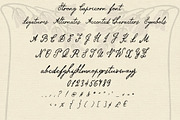 Strong Capricorn font
ligatures Alternates Accented Characters Symbols
A B C D E F G H I J K L M
N O P Q R S T U V W X Y Z
abcdefghijklmnopqrstuvwxyz
0123456789